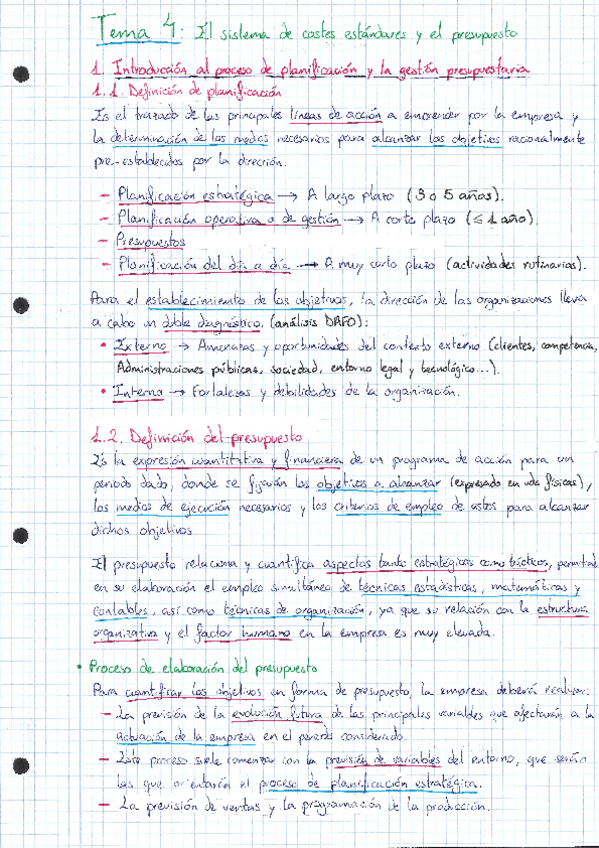 Tema 4: El sistema de costes estándares y el presupuesto
1. Introducción al proceso de planificación y la gestión presupuestaria
1.1. Definición de planificación
Es el trazado de las principales líneas de acción a emprender por la empresa y
la determinación de los medios necesarios para alcanzar los objetivos racionalmente
pre-establecidos por la dirección.
- Planificación estratégica → A largo plazo (3 o 5 años).
- Planificación operativa o de gestión → A corto plazo (≤ 1 año)
- Presupuestos
- Planificación del día a día → A muy corto plazo (actividades rutinarias).
Para el establecimiento de los objetivos, la dirección de las organizaciones lleva
a cabo un doble diagnóstico. (análisis DAFO):
• Externo → Amenazas y oportunidades del contexto externo (clientes, competencia,
Administraciones públicas, sociedad, entorno legal y tecnológico...).
• Interna → Fortalezas y debilidades de la organización.
1.2. Definición del presupuesto
Es la expresión cuantitativa y financiera de un programa de acción para un
periodo dado, donde se fijarán los objetivos a alcanzar (expresado en uds físicas),
los medios de ejecución necesarios y los criterios de empleo de estos para alcanzar
dichos objetivos
El presupuesto relaciona y cuantifica aspectos tanto estratégicos como tácticos,
en su elaboración el empleo simultáneo de técnicas estadísticas, matemáticas y
contables, así como técnicas de organización, ya que su relación con la estructura
organizativa y el factor humano en la empresa es muy elevada.
• Proceso de elaboración del presupuesto
Para cuantificar los objetivos en forma de presupuesto, la empresa deberá realizar:
- La previsión de la evolución futura de las principales variables que afectarán a la
actuación de la empresa en el periodo considerado.
- Este proceso suele comenzar con la previsión de variables del entorno, que serán
las que orientarán el proceso de planificación estratégica.
- La previsión de ventas y la programación de la producción.